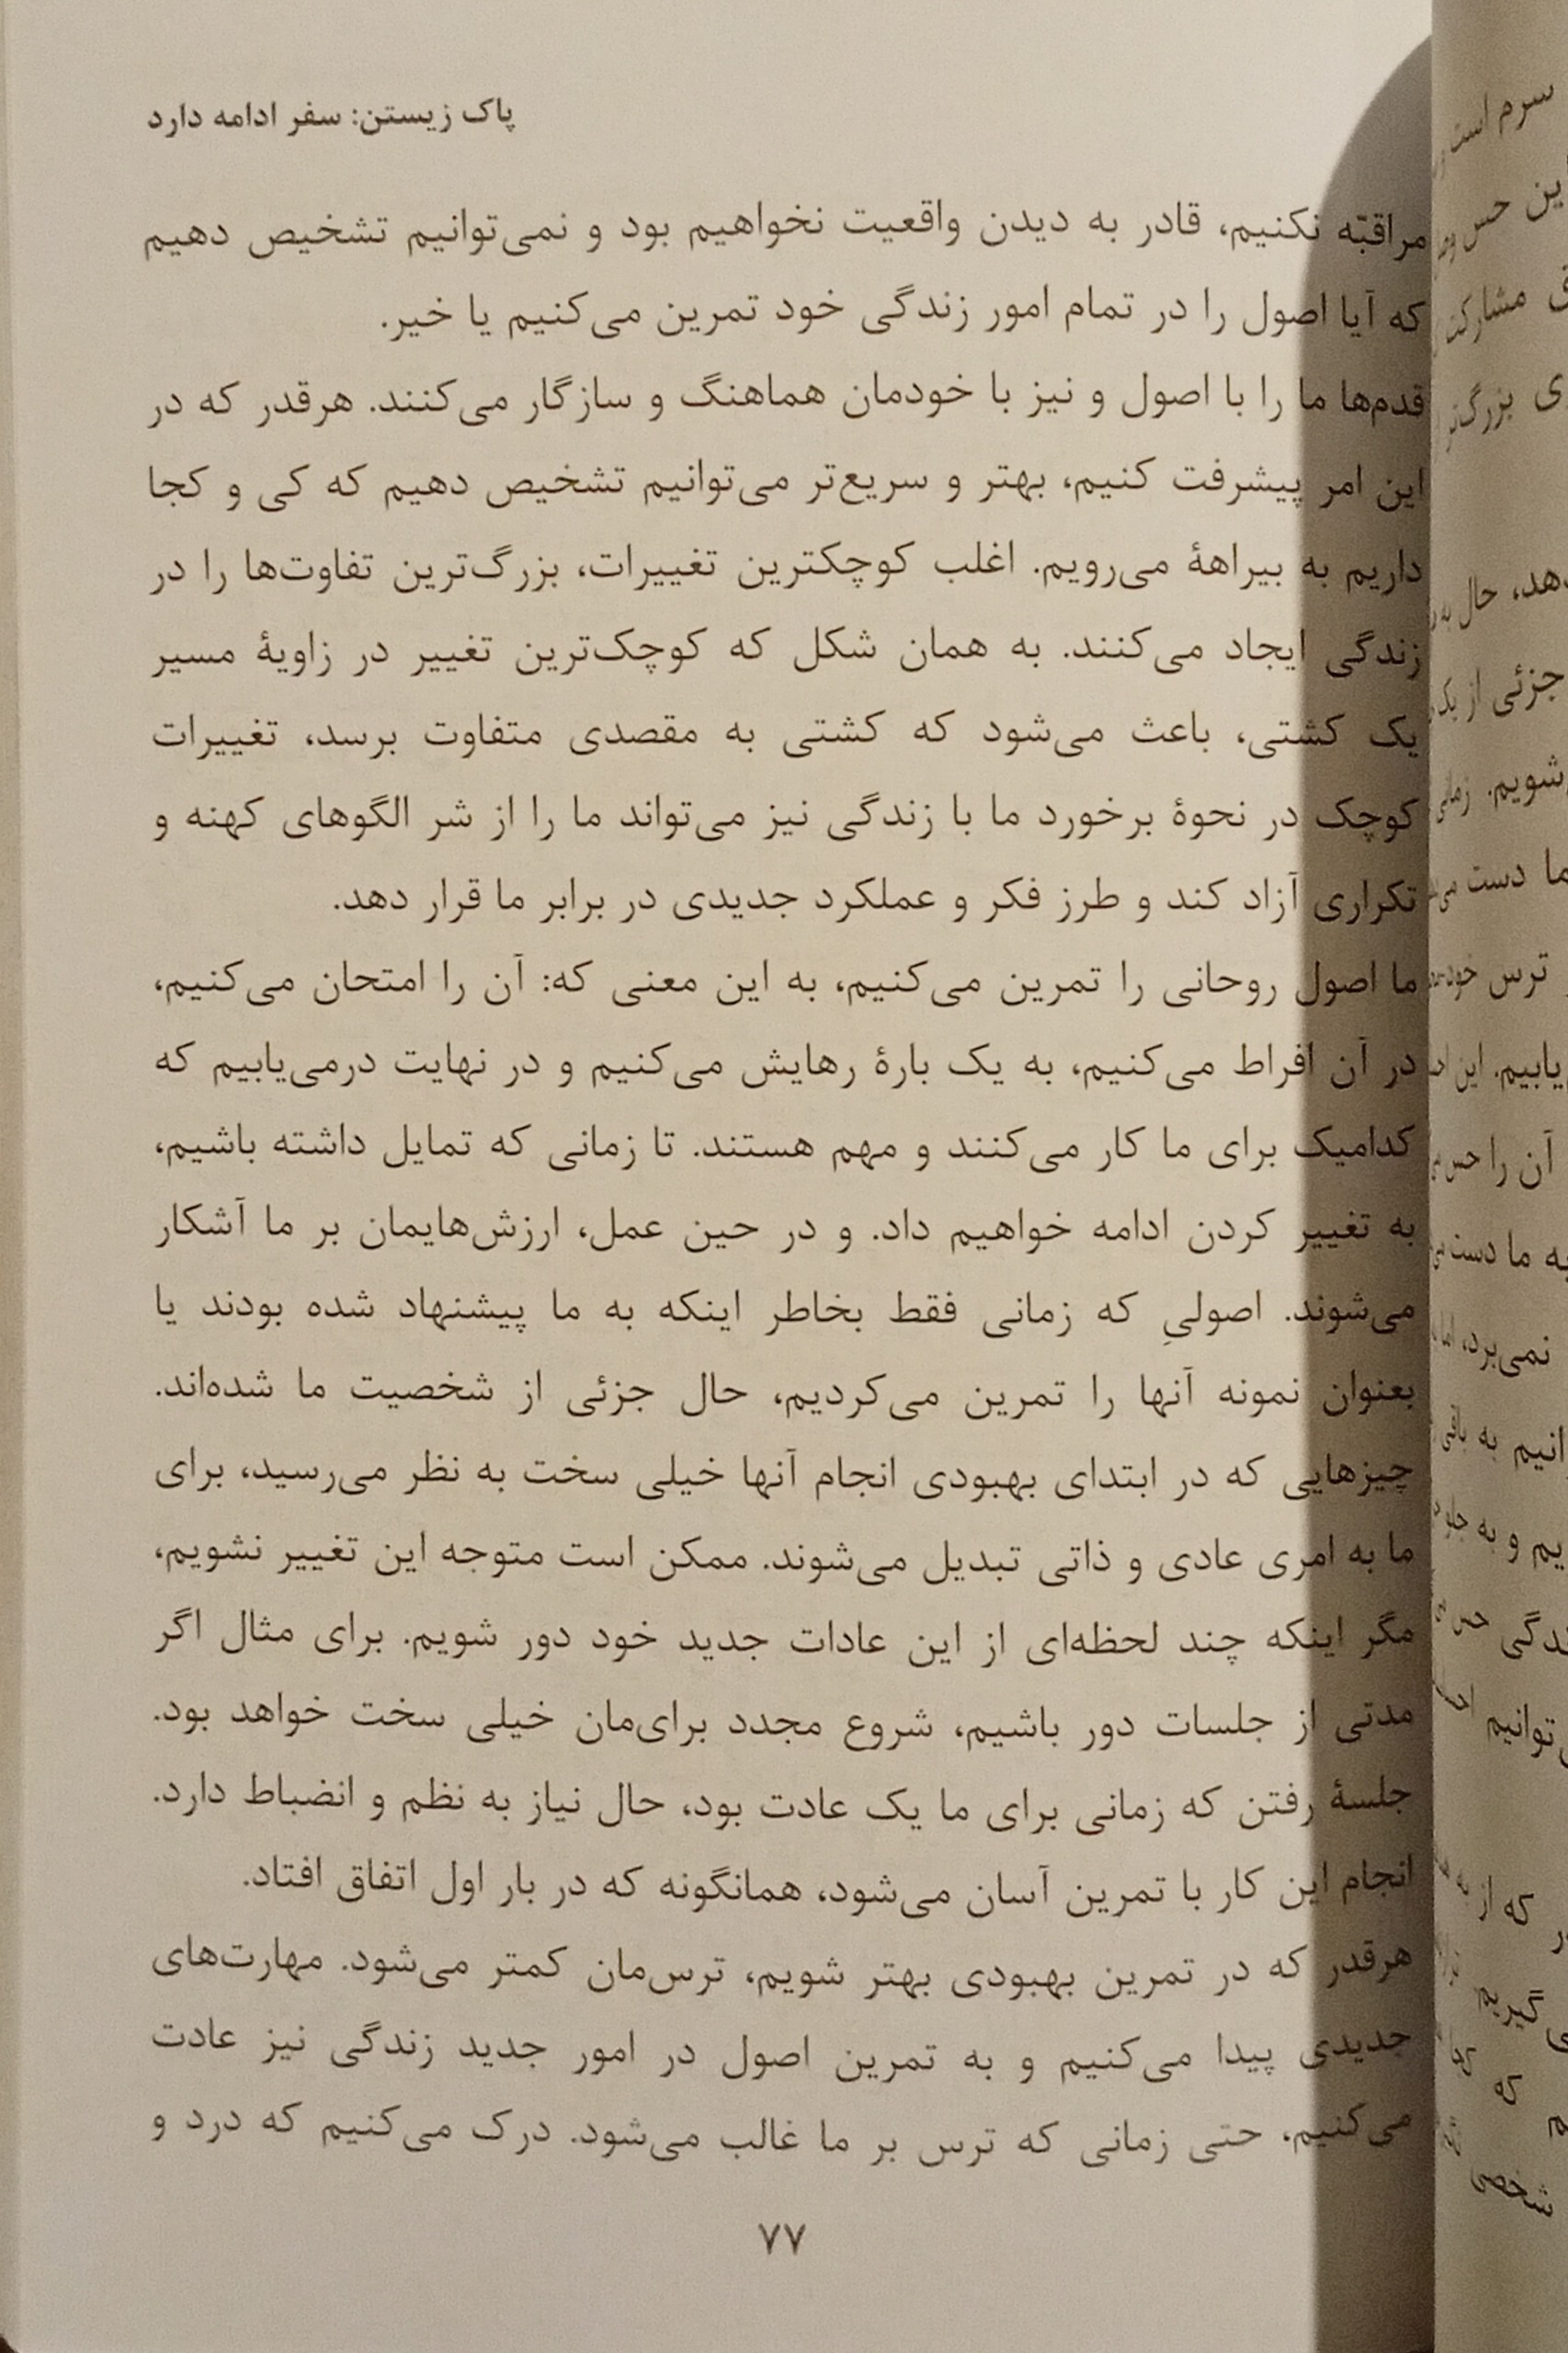 پاک زیستن: سفر ادامه دارد
مراقبّه نکنیم، قادر به دیدن واقعیت نخواهیم بود و نمی‌توانیم تشخیص دهیم
که آیا اصول را در تمام امور زندگی خود تمرین می‌کنیم یا خیر.
قدم‌ها ما را با اصول و نیز با خودمان هماهنگ و سازگار می‌کنند. هرقدر که در
این امر پیشرفت کنیم، بهتر و سریع‌تر می‌توانیم تشخیص دهیم که کی و کجا
داریم به بیراههٔ می‌رویم. اغلب کوچکترین تغییرات، بزرگ‌ترین تفاوت‌ها را در
زندگی ایجاد می‌کنند. به همان شکل که کوچک‌ترین تغییر در زاویهٔ مسیر
یک کشتی، باعث می‌شود که کشتی به مقصدی متفاوت برسد، تغییرات
کوچک در نحوهٔ برخورد ما با زندگی نیز می‌تواند ما را از شر الگوهای کهنه و
تکراری آزاد کند و طرز فکر و عملکرد جدیدی در برابر ما قرار دهد.
ما اصول روحانی را تمرین می‌کنیم، به این معنی که: آن را امتحان می‌کنیم،
در آن افراط می‌کنیم، به یک بارهٔ رهایش می‌کنیم و در نهایت درمی‌یابیم که
کدامیک برای ما کار می‌کنند و مهم هستند. تا زمانی که تمایل داشته باشیم،
به تغییر کردن ادامه خواهیم داد. و در حین عمل، ارزش‌هایمان بر ما آشکار
می‌شوند. اصولیِ که زمانی فقط بخاطر اینکه به ما پیشنهاد شده بودند یا
بعنوان نمونه آنها را تمرین می‌کردیم، حال جزئی از شخصیت ما شده‌اند.
چیزهایی که در ابتدای بهبودی انجام آنها خیلی سخت به نظر می‌رسید، برای
ما به امری عادی و ذاتی تبدیل می‌شوند. ممکن است متوجه این تغییر نشویم،
مگر اینکه چند لحظه‌ای از این عادات جدید خود دور شویم. برای مثال اگر
مدتی از جلسات دور باشیم، شروع مجدد برای‌مان خیلی سخت خواهد بود.
جلسهٔ رفتن که زمانی برای ما یک عادت بود، حال نیاز به نظم و انضباط دارد.
انجام این کار با تمرین آسان می‌شود، همانگونه که در بار اول اتفاق افتاد.
هرقدر که در تمرین بهبودی بهتر شویم، ترس‌مان کمتر می‌شود. مهارت‌های
جدیدی پیدا می‌کنیم و به تمرین اصول در امور جدید زندگی نیز عادت
می‌کنیم، حتی زمانی که ترس بر ما غالب می‌شود. درک می‌کنیم که درد و
۷۷